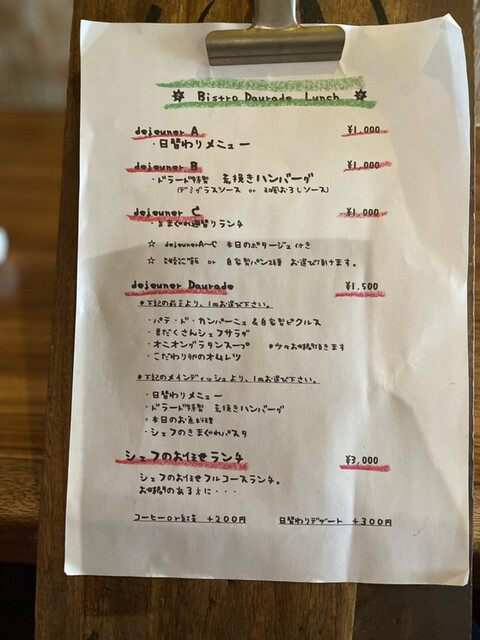 Bistro Daurade Lunch
dejeuner A ¥1,000
・日替わりメニュー
dejeuner B ¥1,000
・ドラード特製 荒挽きハンバーグ
(デミグラスソース or 和風おろしソース)
dejeuner C ¥1,000
・きまぐれ週替りランチ
☆ dejeunerA〜C 本日のポタージュ付き
☆ 雑穀ご飯 or 自家製パン2種 お選び頂けます。
dejeuner Daurade ¥1,500
*下記の前菜より、1皿お選び下さい。
・パテ・ド・カンパーニュ&自家製ピクルス
・具だくさんシェフサラダ
・オニオングラタンスープ *少々お時間頂きます
・こだわり卵のオムレツ
*下記のメインディッシュより、1皿お選び下さい。
・日替わりメニュー
・ドラード特製 荒挽きハンバーグ
・本日のお魚料理
・シェフのきまぐれパスタ
シェフのお任せランチ ¥3,000
シェフのお任せフルコースランチ。
お時間のある方に・・・
コーヒーor紅茶 +200円 日替わりデザート +300円